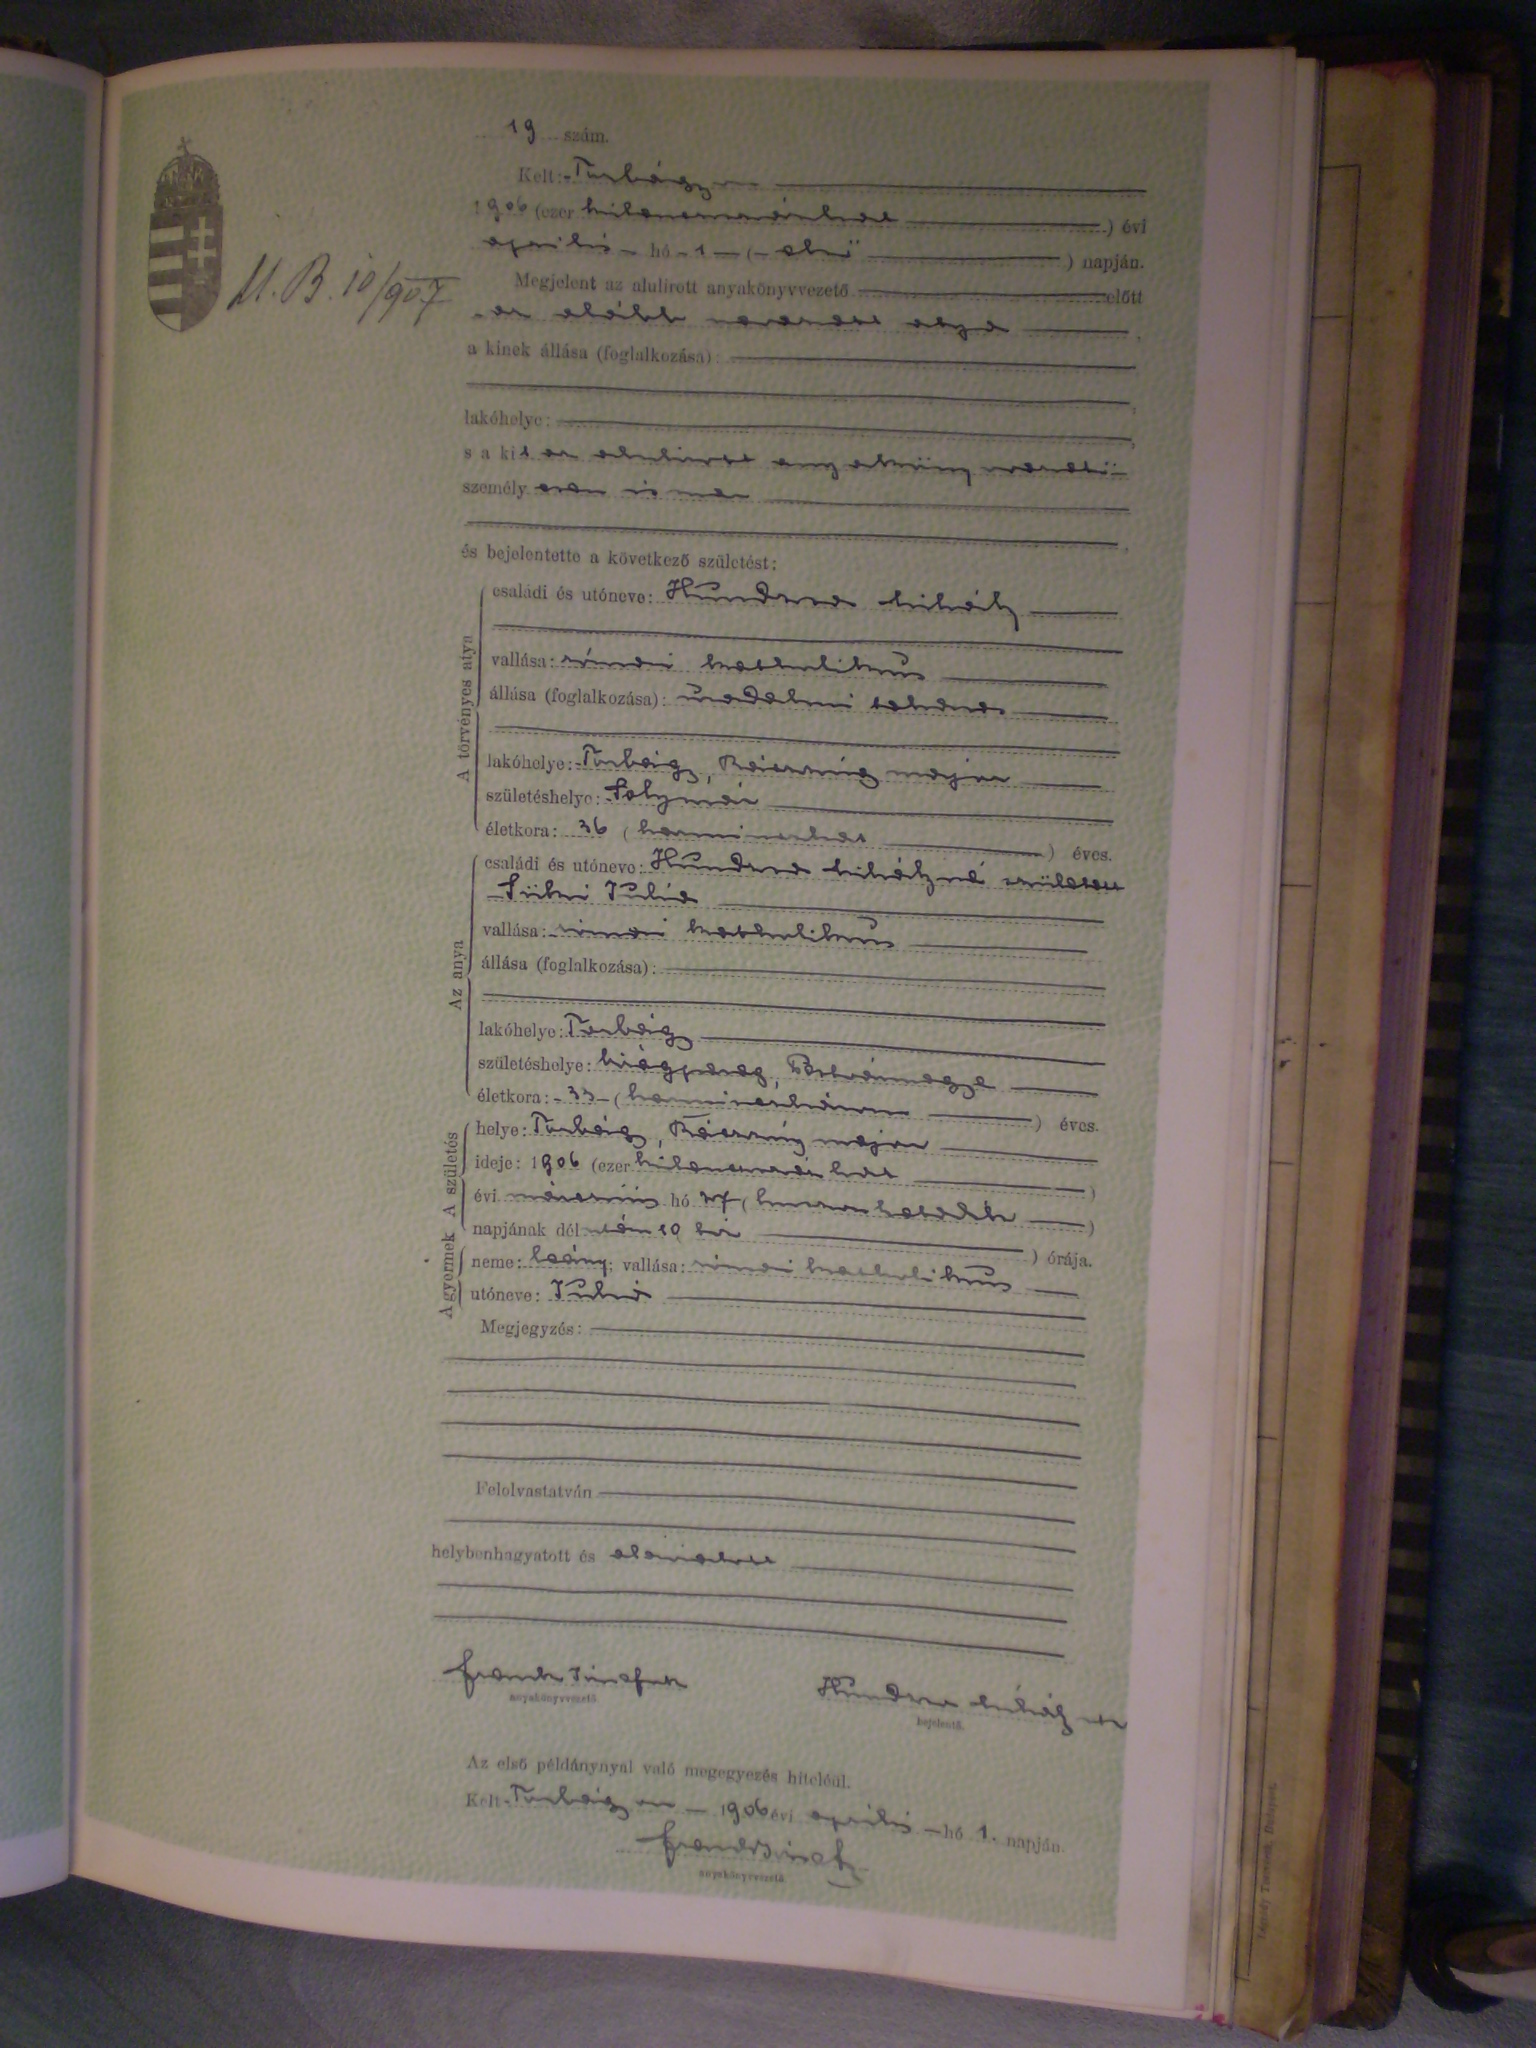 19 szám.
Kelt: Torbágyon
1906 (ezer kilenczszázhat) évi
április hó 1 (első) napján.
M. B. 10/907
Megjelent az alulirott anyakönyvvezető előtt
az alább nevezett atya,
a kinek állása (foglalkozása):
lakóhelye:
s a kit az alulirott anyakönyvvezető
személyesen ismer
és bejelentette a következő születést:
A törvényes atya
családi és utóneve: Hundzsa Mihály
vallása: római katholikus
állása (foglalkozása): uradalmi
lakóhelye: Torbágy, major
születéshelye: Solymár
életkora: 36 (harminczhat) éves.
Az anya
családi és utóneve: Hundzsa Mihályné született
Julia
vallása: római katholikus
állása (foglalkozása):
lakóhelye: Torbágy
születéshelye:
életkora: 33 (harminczhárom) éves.
A születés
helye: Torbágy, major
ideje: 1906 (ezer kilenczszázhat)
évi márczius hó 27 (huszonhetedik)
napjának dél után 10 (tiz) órája.
A gyermek
neme: leány; vallása: római katholikus
utóneve: Julia
Megjegyzés:
Felolvastatván
helybenhagyatott és aláiratott
anyakönyvvezető.
Hundzsa Mihály
bejelentő.
Az első példánynyal való megegyezés hiteléül.
Kelt Torbágyon 1906 évi április hó 1. napján.
anyakönyvvezető